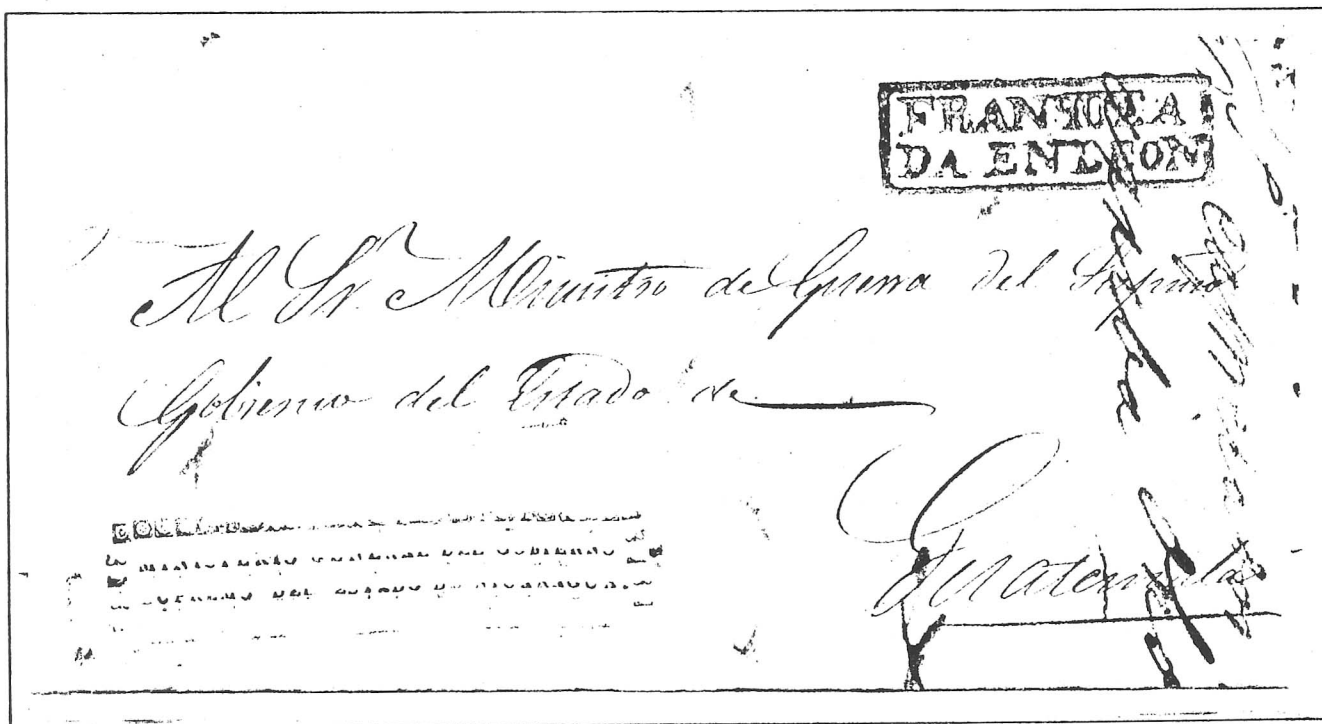 FRANQUEA
DA EN LEON
Al Sr. Ministro de Guerra del Supmo
Gobierno del Estado de
Guatemala
MINISTERIO GENERAL DEL GOBIERNO
SUPREMO DEL ESTADO DE NICARAGUA.